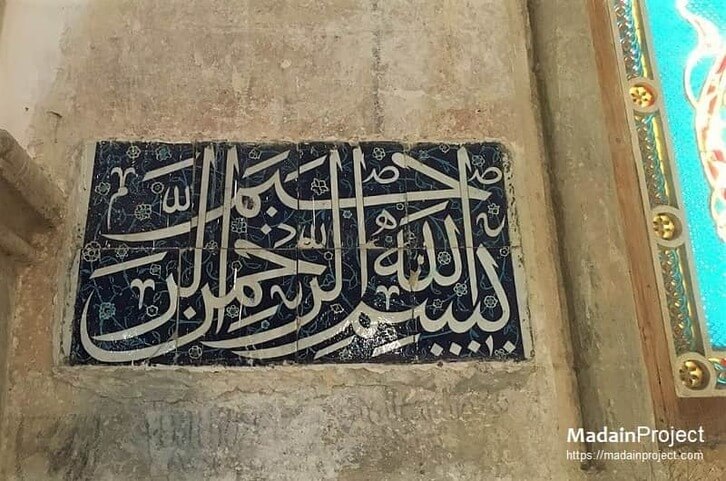 بسم الله الرحمن الرحيم
MadainProject
https://madainproject.com